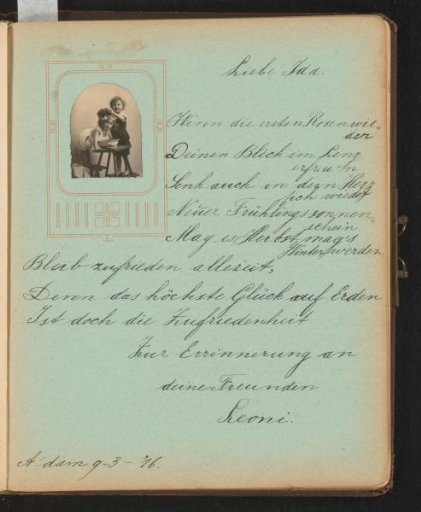 Liebe Ida.
Wenn die ersten Rosen wie-
der
Deinen Blick im Lenz
erfreu'n
Senk auch in dein Herz
sich wieder
Neuer Frühlingssonnen-
schein
Mag es Herbst, mag's
Winter werden
Bleib zufrieden allezeit,
Denn das höchste Glück auf Erden
Ist doch die Zufriedenheit
Zur Errinnerung an
deine Freunden
Leoni.
A'dam 9-3-'16.